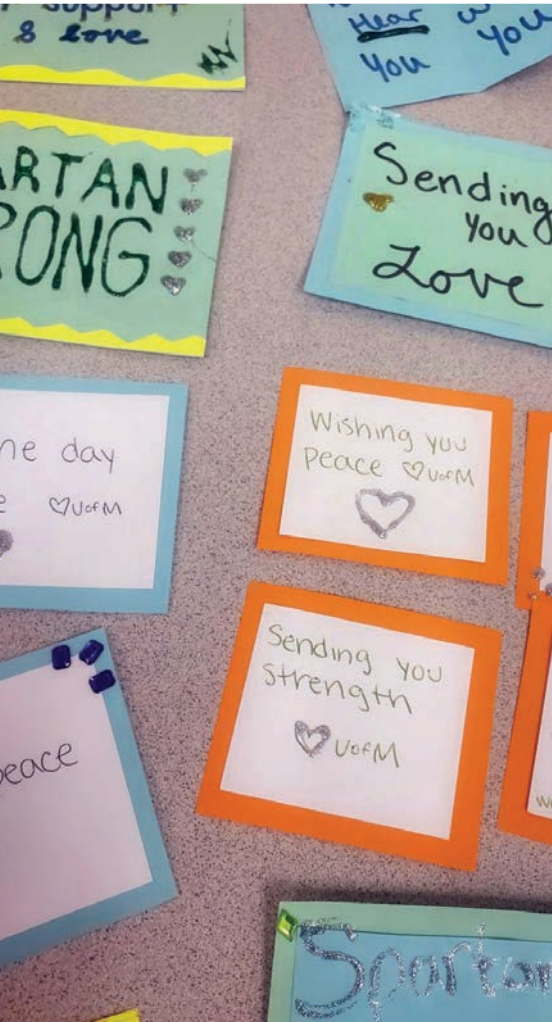 support
& love
Hear
you
you
ARTAN
RONG
Sending
you
Love
ne day
e ♡UofM
Wishing you
peace ♡UofM
Sending you
strength
♡UofM
peace
Spartan